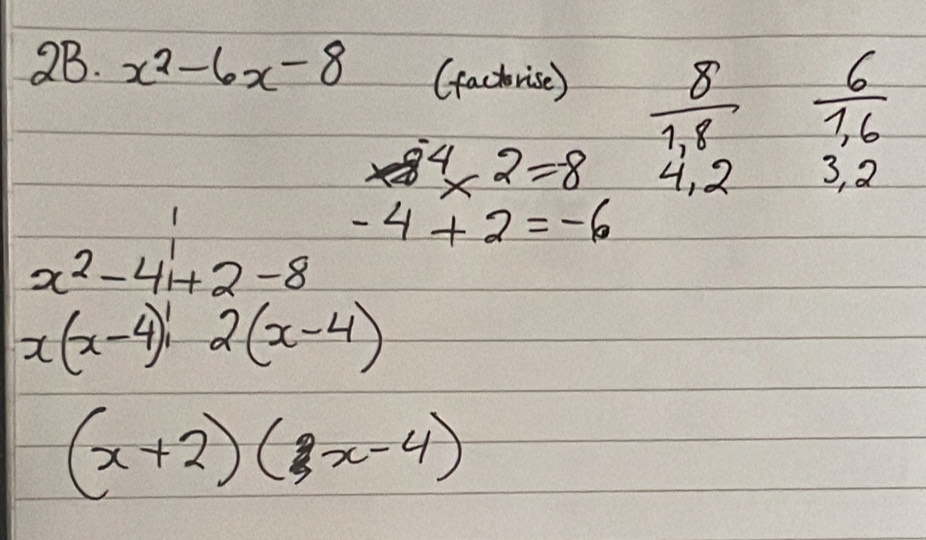 2B. x² - 6x - 8 (factorise)
8
1,8
4,2
6
1,6
3,2
-4 × 2 = -8
-4 + 2 = -6
x² - 4 + 2 - 8
x(x-4) 2(x-4)
(x+2)(x-4)